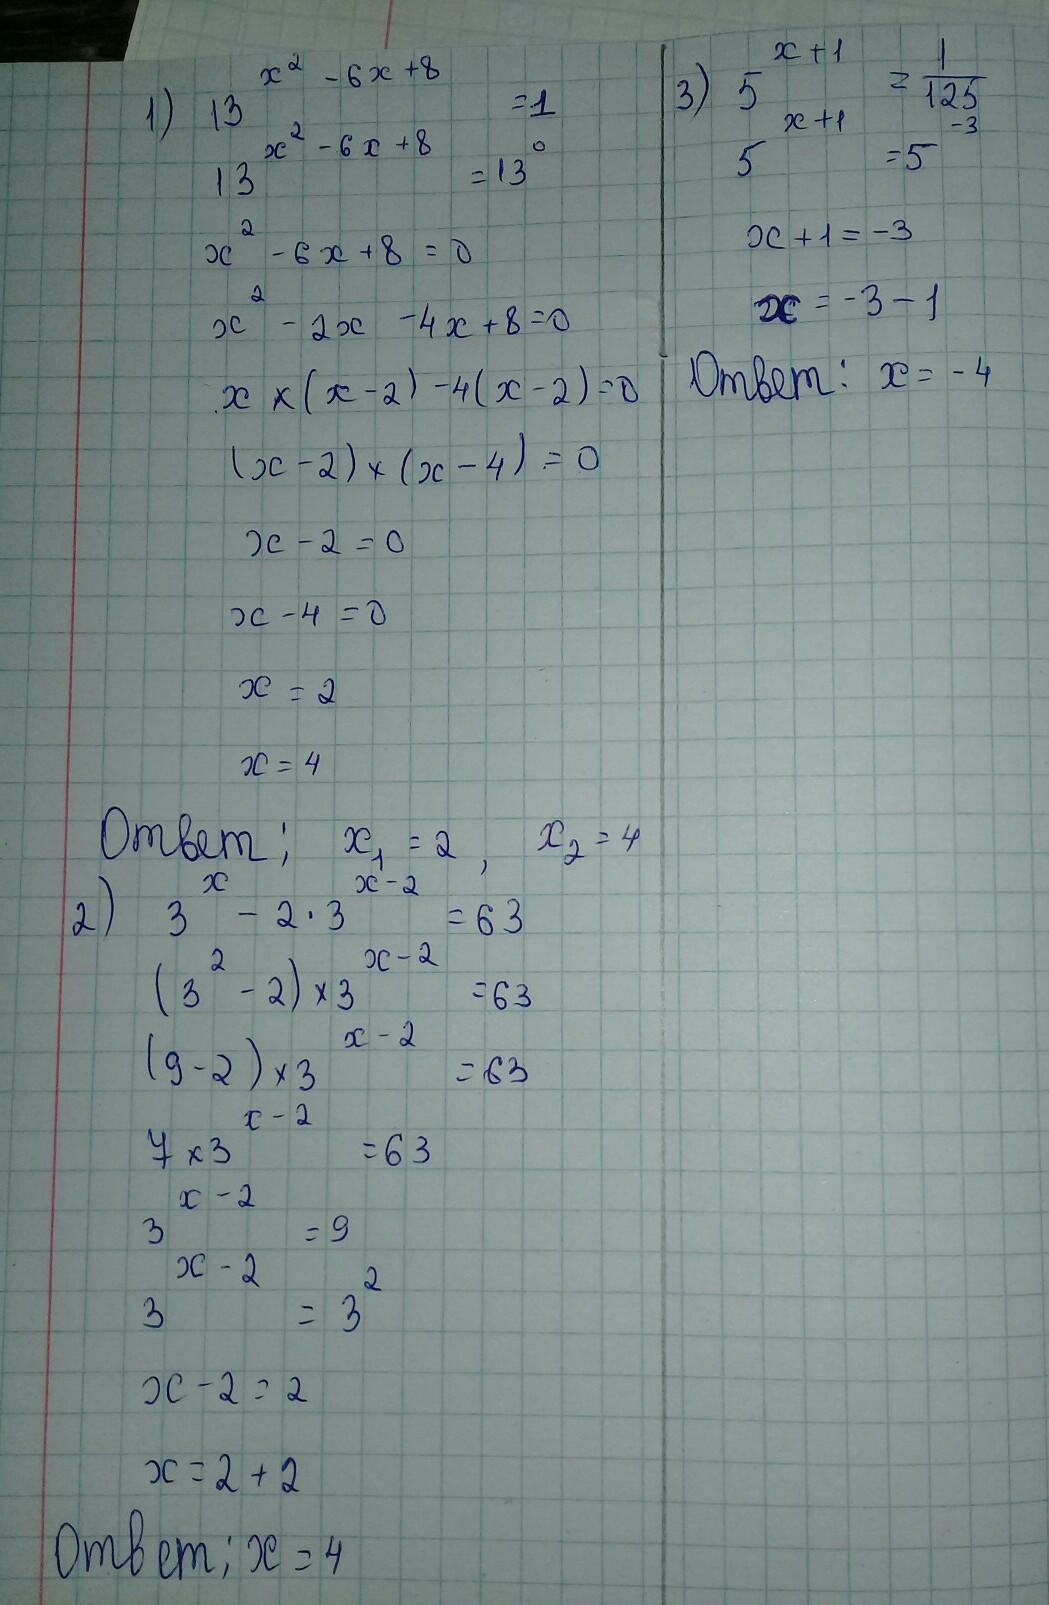 1) 13^(x² - 6x + 8) = 1
13^(x² - 6x + 8) = 13⁰
x² - 6x + 8 = 0
x² - 2x - 4x + 8 = 0
x × (x - 2) - 4(x - 2) = 0
(x - 2) × (x - 4) = 0
x - 2 = 0
x - 4 = 0
x = 2
x = 4
Ответ; x₁ = 2, x₂ = 4
2) 3^x - 2 · 3^(x-2) = 63
(3² - 2) × 3^(x-2) = 63
(9 - 2) × 3^(x-2) = 63
7 × 3^(x-2) = 63
3^(x-2) = 9
3^(x-2) = 3²
x - 2 = 2
x = 2 + 2
Ответ; x = 4
3) 5^(x+1) = 1/125
5^(x+1) = 5^(-3)
x + 1 = -3
x = -3 - 1
Ответ: x = -4